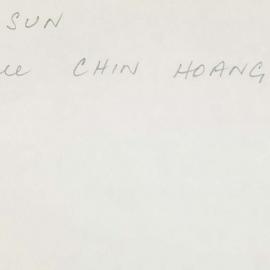 SUN
CHIN HOANG